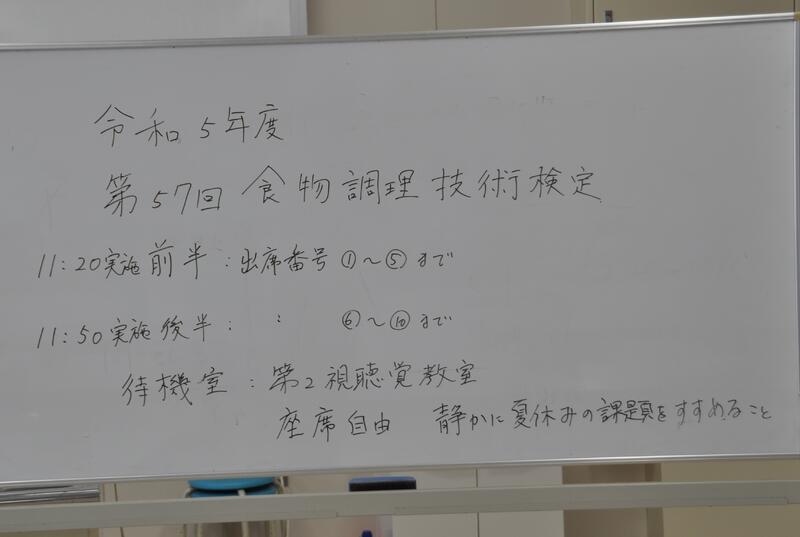 令和5年度
第57回 食物調理技術検定
11:20実施 前半 : 出席番号 ①〜⑤まで
11:50実施 後半 : 〃 ⑥〜⑩まで
待機室 : 第2視聴覚教室
座席自由 静かに夏休みの課題をすすめること